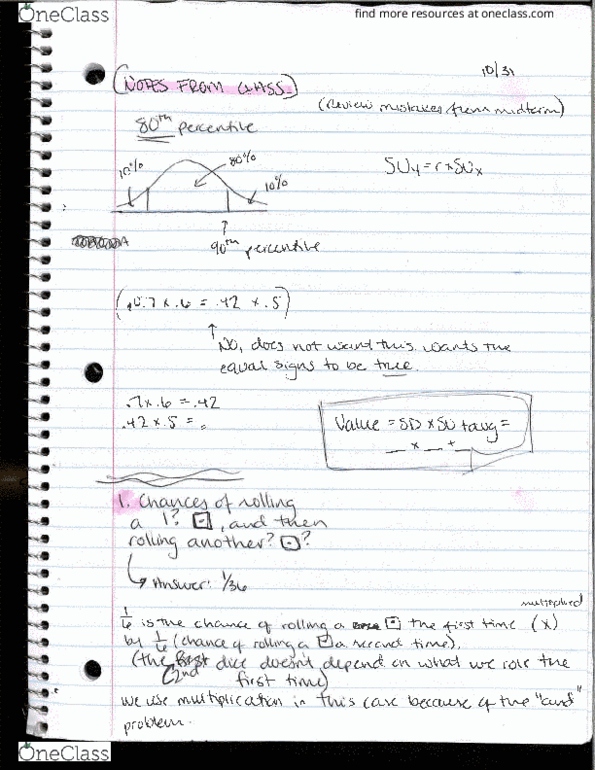 OneClass
find more resources at oneclass.com
10/31
(NOTES FROM CLASS)
(Review mistakes from midterm)
80th percentile
10% 80% 10%
SUy = r x SUx
90th percentile
.7 x .6 = .42 x .5)
No, does not want this. wants the
equal signs to be true.
.7 x .6 = .42
.42 x .5 =
Value = SD x SU + avg =
__ x __ + __
1. Chances of rolling
a 1? ⚀, and then
rolling another? ⚀?
Answer: 1/36
1/6 is the chance of rolling a ⚀ the first time (x) multiplied
by 1/6 (chance of rolling a ⚀ a second time),
(the 2nd dice doesn't depend on what we role the
first time)
we use multiplication in this case because of the "and"
problem.
OneClass